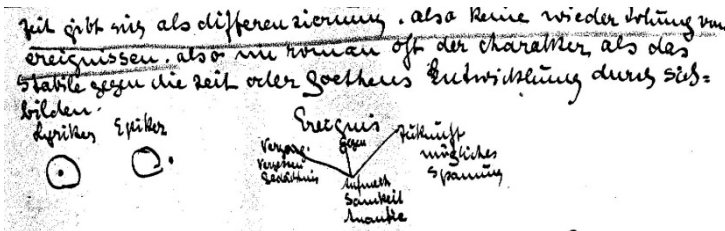 zeit gibt nis als differenzierung. also keine wiederholung von
ereignissen. also im roman oft der charakter als das
stabile gegen die zeit oder Goethens Entwicklung durch sich=
bilden.
Lyriker Epiker
Ereignis
Vergang. Gegen Zukunft
Vergessen mögliches
Gedächtnis Spannung
Aufmerk
Samkeit
Ananke